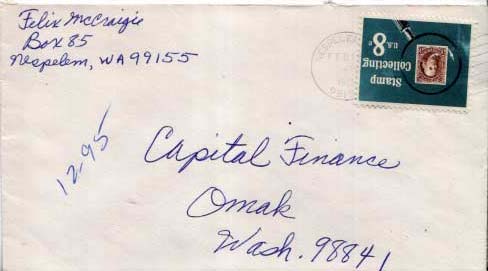 Felix McCraigie
Box 85
Nespelem, WA 99155
U.S. 8c
Stamp
Collecting
12.95
Capital Finance
Omak
Wash. 98841